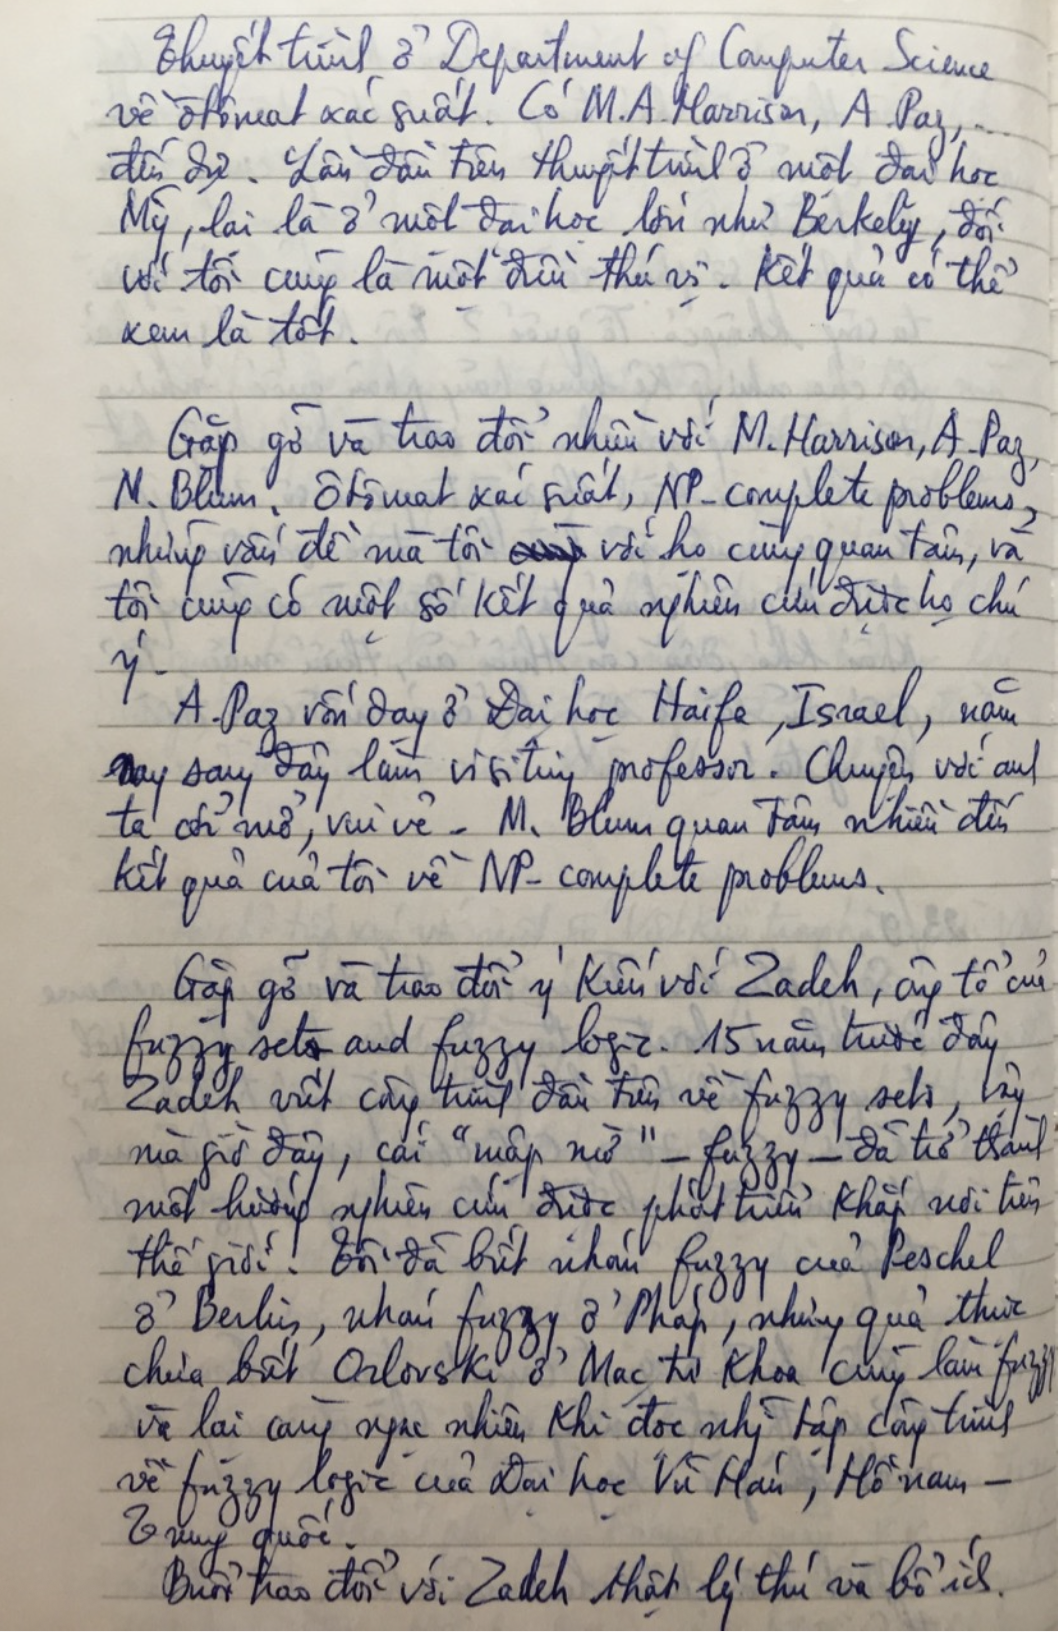 Thuyết trình ở Department of Computer Science
về ôtômat xác suất. Có M.A. Harrison, A. Paz, ...
đến dự. Lần đầu tiên thuyết trình ở một đại học
Mỹ, lại là ở một đại học lớn như Berkeley, đối
với tôi cũng là một điều thú vị. Kết quả có thể
xem là tốt.
Gặp gỡ và trao đổi nhiều với M. Harrison, A. Paz,
M. Blum. Ôtômat xác suất, NP-complete problems,
những vấn đề mà tôi với họ cùng quan tâm, và
tôi cũng có một số kết quả nghiên cứu được họ chú
ý.
A. Paz vốn dạy ở Đại học Haifa, Israel, năm
nay sang đây làm visiting professor. Chuyện với anh
ta cởi mở, vui vẻ. M. Blum quan tâm nhiều đến
kết quả của tôi về NP-complete problems.
Gặp gỡ và trao đổi ý kiến với Zadeh, ông tổ của
fuzzy sets and fuzzy logic. 15 năm trước đây
Zadeh viết công trình đầu tiên về fuzzy sets, vậy
mà giờ đây, cái "mập mờ" - fuzzy - đã trở thành
một hướng nghiên cứu được phát triển khắp nơi trên
thế giới. Tôi đã biết nhóm fuzzy của Peschel
ở Berlin, nhóm fuzzy ở Pháp, nhưng quả thực
chưa biết Orlovski ở Mạc tư khoa cũng làm fuzzy
và lại càng ngạc nhiên khi đọc những tập công trình
về fuzzy logic của Đại học Vũ Hán, Hồ nam -
Trung quốc.
Buổi trao đổi với Zadeh thật lý thú và bổ ích.